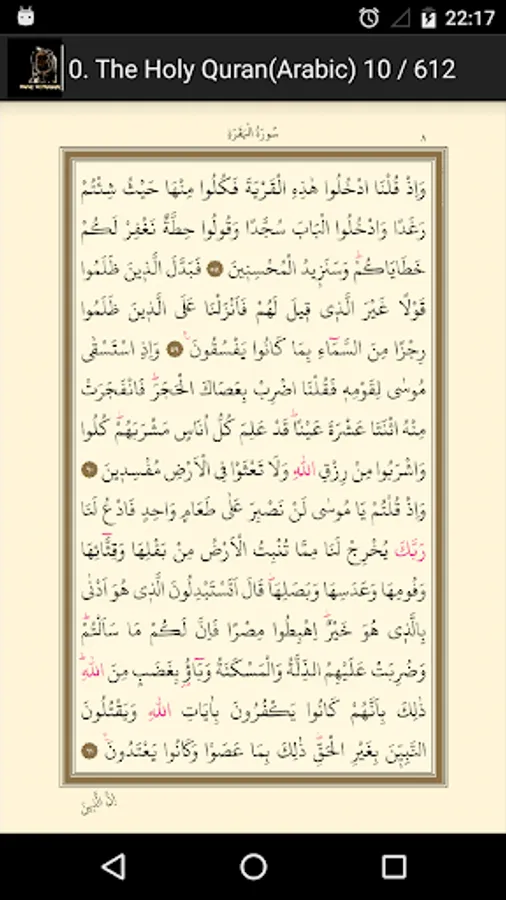 22:17
0. The Holy Quran(Arabic) 10 / 612
سُورَةُ الْبَقَرَةِ ٨
وَاِذْ قُلْنَا ادْخُلُوا هٰذِهِ الْقَرْيَةَ فَكُلُوا مِنْهَا حَيْثُ شِئْتُمْ
رَغَدًا وَادْخُلُوا الْبَابَ سُجَّدًا وَقُولُوا حِطَّةٌ نَغْفِرْ لَكُمْ
خَطَايَاكُمْۜ وَسَنَزِيدُ الْمُحْسِنِينَ ٥٨ فَبَدَّلَ الَّذِينَ ظَلَمُوا
قَوْلًا غَيْرَ الَّذِي قِيلَ لَهُمْ فَاَنْزَلْنَا عَلَى الَّذِينَ ظَلَمُوا
رِجْزًا مِنَ السَّمَٓاءِ بِمَا كَانُوا يَفْسُقُونَ ٥٩ وَاِذِ اسْتَسْقٰى
مُوسٰى لِقَوْمِهِ فَقُلْنَا اضْرِبْ بِعَصَاكَ الْحَجَرَۜ فَانْفَجَرَتْ
مِنْهُ اثْنَتَا عَشْرَةَ عَيْنًاۜ قَدْ عَلِمَ كُلُّ اُنَاسٍ مَشْرَبَهُمْۜ كُلُوا
وَاشْرَبُوا مِنْ رِزْقِ اللّٰهِ وَلَا تَعْثَوْا فِي الْاَرْضِ مُفْسِدِينَ ٦٠
وَاِذْ قُلْتُمْ يَا مُوسٰى لَنْ نَصْبِرَ عَلٰى طَعَامٍ وَاحِدٍ فَادْعُ لَنَا
رَبَّكَ يُخْرِجْ لَنَا مِمَّا تُنْبِتُ الْاَرْضُ مِنْ بَقْلِهَا وَقِثَّٓائِهَا
وَفُومِهَا وَعَدَسِهَا وَبَصَلِهَاۜ قَالَ اَتَسْتَبْدِلُونَ الَّذِي هُوَ اَدْنٰى
بِالَّذِي هُوَ خَيْرٌۜ اِهْبِطُوا مِصْرًا فَاِنَّ لَكُمْ مَا سَاَلْتُمْۜ
وَضُرِبَتْ عَلَيْهِمُ الذِّلَّةُ وَالْمَسْكَنَةُ وَبَٓاؤُ۫ بِغَضَبٍ مِنَ اللّٰهِۜ
ذٰلِكَ بِاَنَّهُمْ كَانُوا يَكْفُرُونَ بِاٰيَاتِ اللّٰهِ وَيَقْتُلُونَ
النَّبِيّنَ بِغَيْرِ الْحَقِّۜ ذٰلِكَ بِمَا عَصَوْا وَكَانُوا يَعْتَدُونَ ٦١
اِنَّ الَّذِينَ